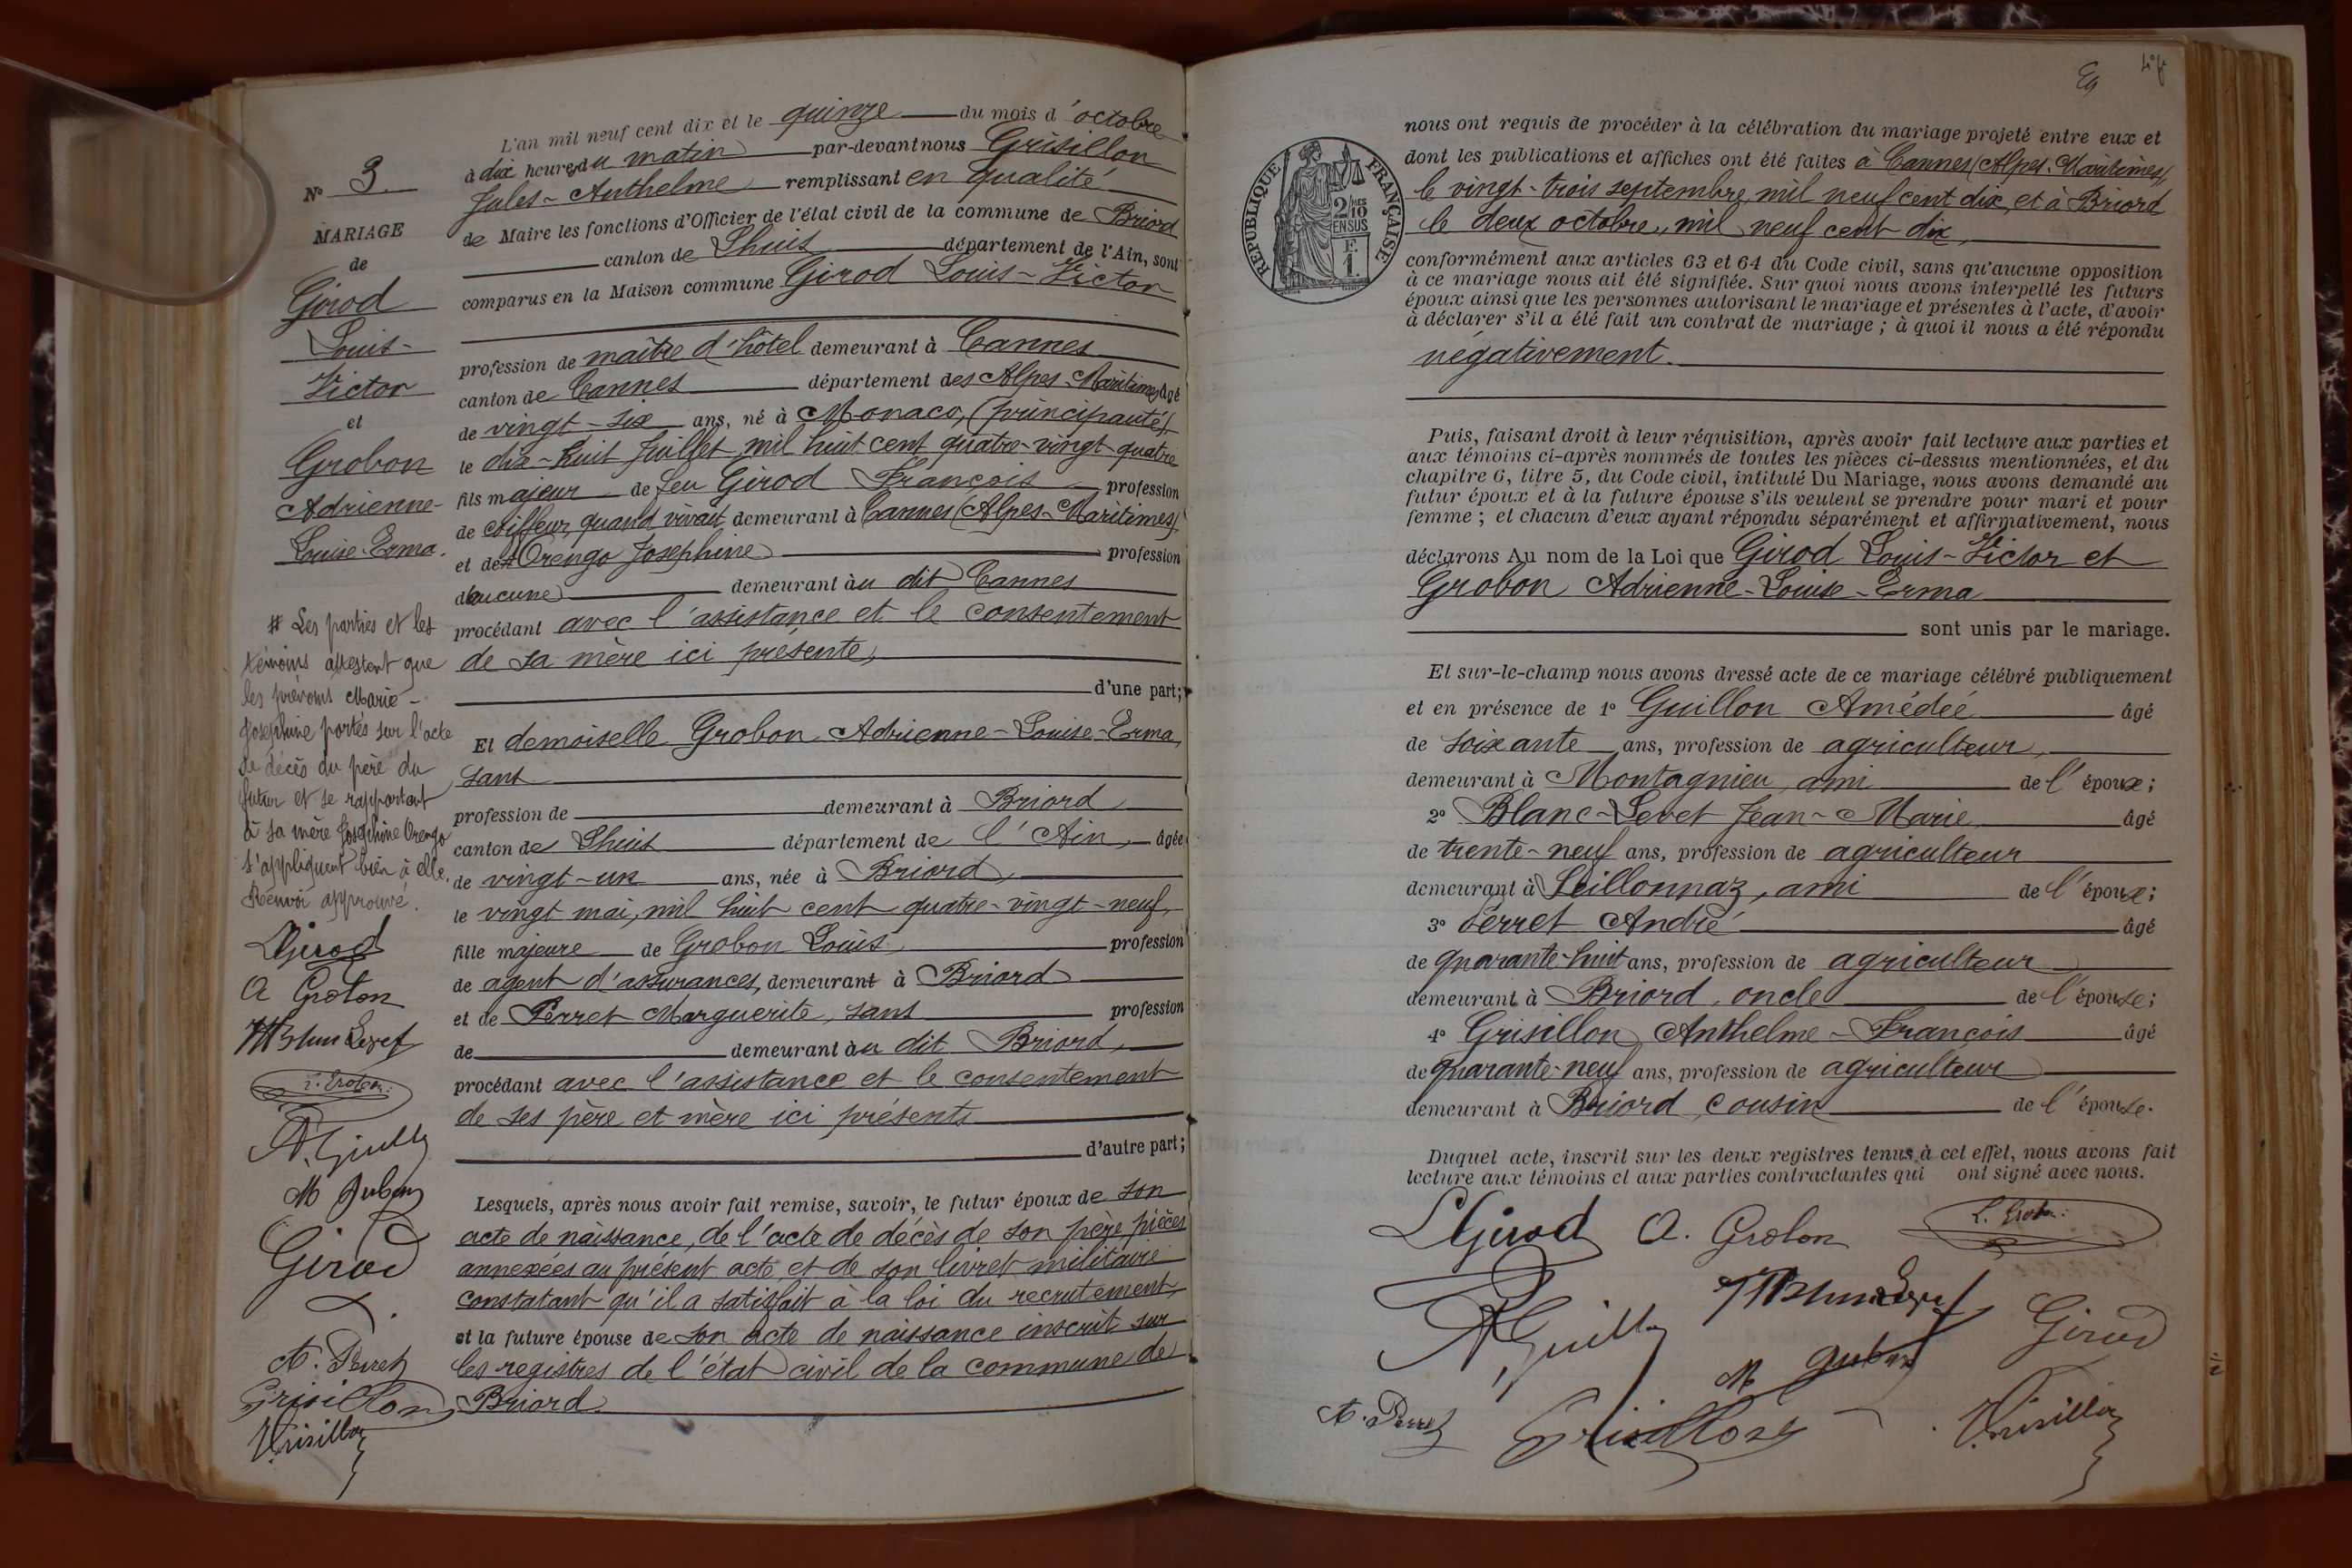 N° 3.
MARIAGE
de
Girod
Louis-
Victor
et
Grobon
Adrienne-
Louise-Erma.
# Les parties et les
témoins attestent que
les prénoms Marie-
Joséphine portés sur l'acte
de décès du père du
futur et se rapportant
à sa mère Joséphine Orengo
s'appliquent bien à elle.
Renvoi approuvé.
LGirod
A Grobon
L. Grobon
A. Guill
M Guben
Girod
A. Perret
Grisillon
Grisillon
L'an mil neuf cent dix et le quinze du mois d'octobre
à dix heures du matin par-devant nous Grisillon
Jules-Anthelme remplissant en qualité
de Maire les fonctions d'Officier de l'état civil de la commune de Briord
canton de Lhuis département de l'Ain, sont
comparus en la Maison commune Girod Louis-Victor
profession de maître d'hôtel demeurant à Cannes
canton de Cannes département des Alpes-Maritimes, âgé
de vingt-six ans, né à Monaco, (principauté)
le dix-huit Juillet mil huit cent quatre-vingt-quatre
fils majeur de feu Girod François profession
de coiffeur, quand vivait, demeurant à Cannes (Alpes-Maritimes),
et de # Orengo Joséphine profession
d'aucune demeurant au dit Cannes
procédant avec l'assistance et le consentement
de sa mère ici présente,
d'une part;
Et demoiselle Grobon Adrienne-Louise-Erma,
sans
profession de demeurant à Briord
canton de Lhuis département de l'Ain, âgée
de vingt-un ans, née à Briord,
le vingt mai, mil huit cent quatre-vingt-neuf,
fille majeure de Grobon Louis profession
de agent d'assurances, demeurant à Briord
et de Perret Marguerite, sans profession
de demeurant au dit Briord,
procédant avec l'assistance et le consentement
de ses père et mère ici présents
d'autre part;
Lesquels, après nous avoir fait remise, savoir, le futur époux de son
acte de naissance, de l'acte de décès de son père, pièces
annexées au présent acte, et de son livret militaire
constatant qu'il a satisfait à la loi du recrutement,
et la future épouse de son acte de naissance inscrit sur
les registres de l'état civil de la commune de
Briord
RÉPUBLIQUE FRANÇAISE
2/10
EN SUS
F.
1.
nous ont requis de procéder à la célébration du mariage projeté entre eux et
dont les publications et affiches ont été faites à Cannes (Alpes-Maritimes),
le vingt-trois septembre mil neuf cent dix, et à Briord
le deux octobre, mil neuf cent dix,
conformément aux articles 63 et 64 du Code civil, sans qu'aucune opposition
à ce mariage nous ait été signifiée. Sur quoi nous avons interpellé les futurs
époux ainsi que les personnes autorisant le mariage et présentes à l'acte, d'avoir
à déclarer s'il a été fait un contrat de mariage ; à quoi il nous a été répondu
négativement.
Puis, faisant droit à leur réquisition, après avoir fait lecture aux parties et
aux témoins ci-après nommés de toutes les pièces ci-dessus mentionnées, et du
chapitre 6, titre 5, du Code civil, intitulé Du Mariage, nous avons demandé au
futur époux et à la future épouse s'ils veulent se prendre pour mari et pour
femme ; et chacun d'eux ayant répondu séparément et affirmativement, nous
déclarons Au nom de la Loi que Girod Louis-Victor et
Grobon Adrienne-Louise-Erma
sont unis par le mariage.
Et sur-le-champ nous avons dressé acte de ce mariage célébré publiquement
et en présence de 1° Guillon Amédée âgé
de soixante ans, profession de agriculteur,
demeurant à Montagnieu, ami de l'époux;
2° Blanc-Levet Jean-Marie âgé
de trente-neuf ans, profession de agriculteur
demeurant à Seillonnaz, ami de l'époux;
3° Perret André âgé
de quarante-huit ans, profession de agriculteur
demeurant à Briord, oncle de l'épouse;
4° Grisillon Anthelme-François âgé
de quarante-neuf ans, profession de agriculteur
demeurant à Briord, cousin de l'épouse.
Duquel acte, inscrit sur les deux registres tenus à cet effet, nous avons fait
lecture aux témoins et aux parties contractantes qui ont signé avec nous.
LGirod A. Grobon L. Grobon
A Guill Girod
M Guben
A. Perret Grisillon Grisillon